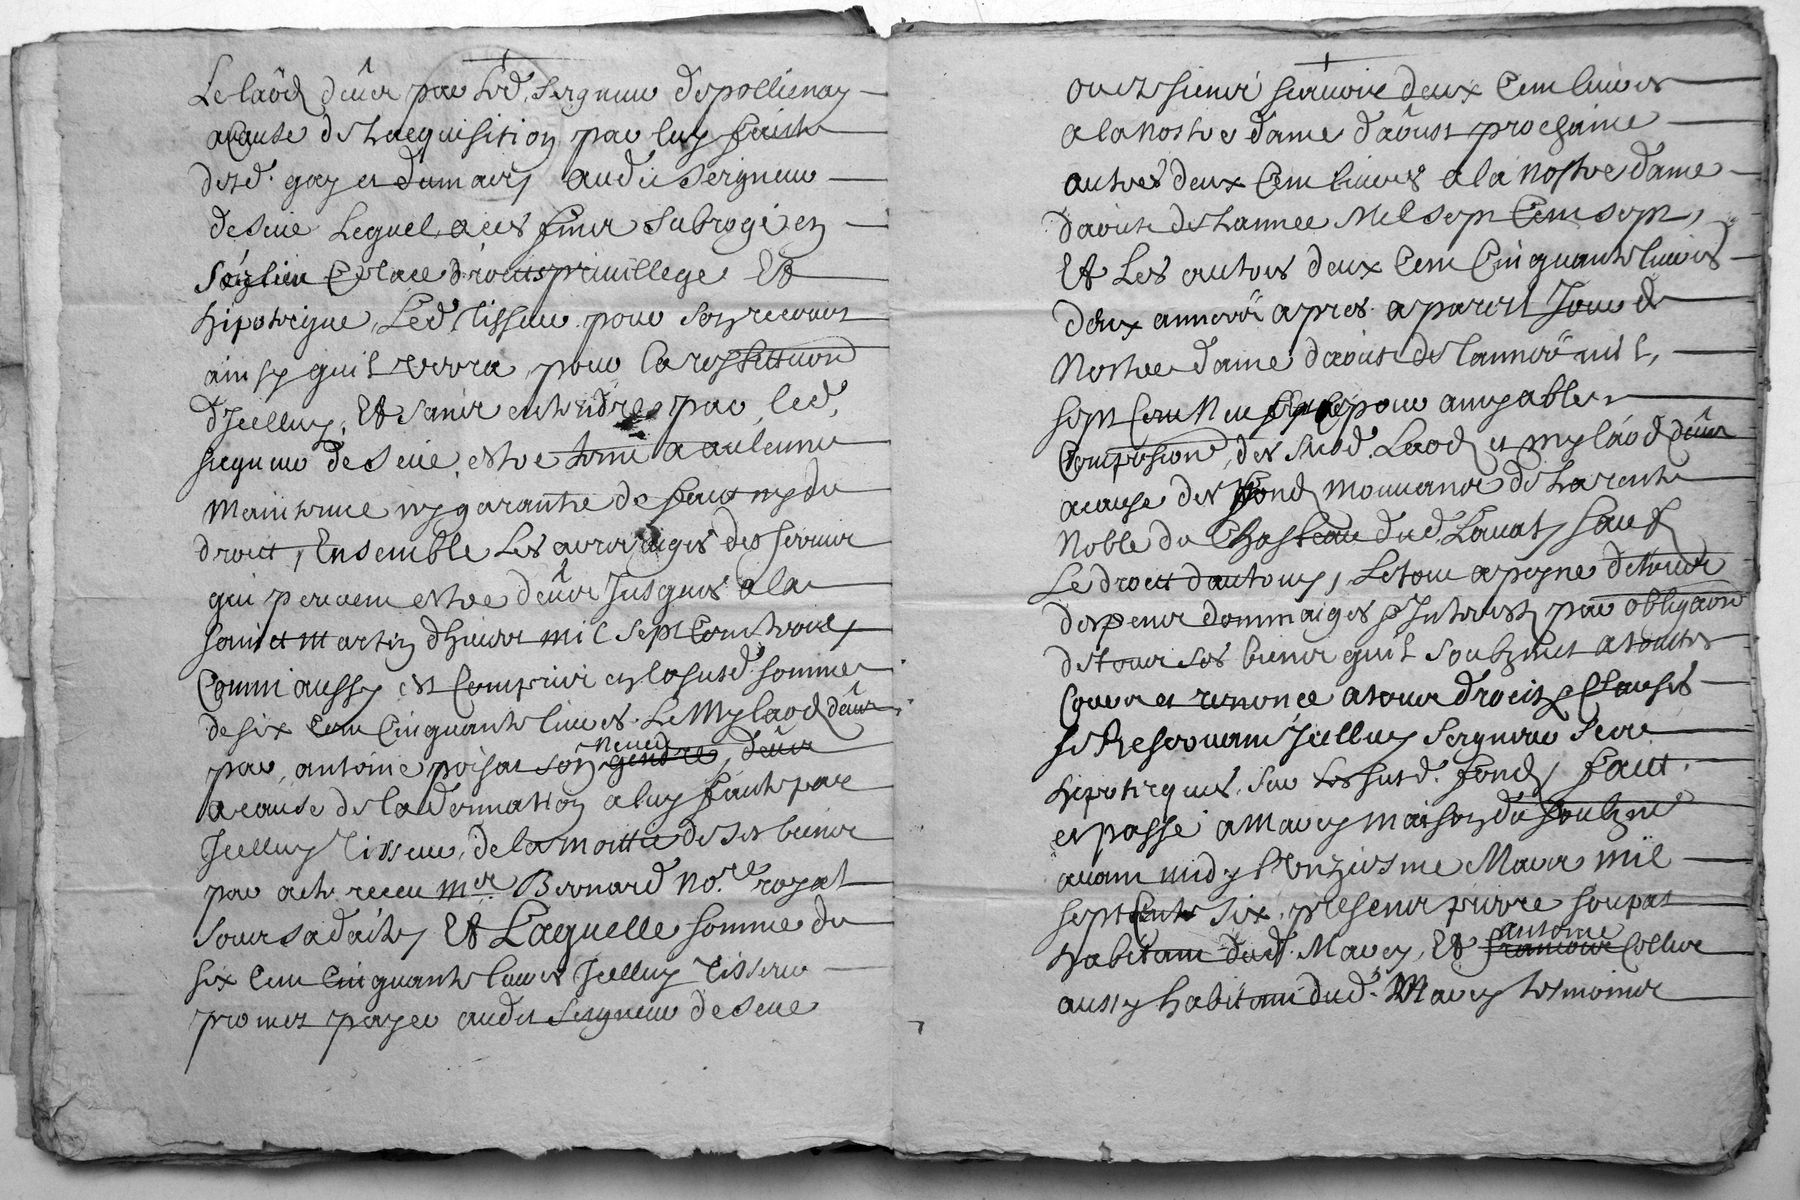 Le laod deue par led. Seigneur de pollienay
a cause de Lacquisition par luy faicte
desd. gay et dumaies audit Seigneur
de seue Lequel a ces fins subrogé en
son lieu place droicts priuillege Et
hipoteque, Led Tisseur pour son recours
ainsy quil verra pour la restitution
d'Icelluy, Et sans entendre par led.
seigneur de seue estre tenu a aulcune
maintenue ny garantie de faict ny du
droict, Ensemble Les arreraiges des seruis
qui peuuent estre deus Jusques a la
sainct Martin d'hiuer mil sept Cent trois,
Comm aussy est Compris en la susd. somme
de six Cent Cinquante liures Le My laod deue
par antoine poisat son neueu gendre, deue
a cause de la donnation a luy faicte par
Icelluy Tisseur, de la moitie de ses biens
par acte receu mer Bernard no.re royal
sous sa datte, Et Laquelle somme du
six Cent Cinquante liures Icelluy Tisseur
promet payer audit Seigneur de seue
ou es siens scauoir deux Cent liures
a la nostre dame d'aoust prochaine
autres deux Cent liures a la nostre dame
daoust de Lannee Mil sept Cent sept,
Et Les autres deux Cent Cinquante liures
deux annees apres a pareil Jour de
Nostre dame daoust de lannee mil,
sept Cent Neuf pour amyable
Composition des susd. Laod et my laod deue
a cause des fond mouuans de La rente
Noble du Chasteau dud. Lauat, sauf
Le droict dautruy, Le tout a peyne de tous
despens dommaiges et Interest par obligaon
de tous ses biens quil soubzmet a toutes
Cours et renonce a tous droicts et Clauses
se Reseruant Icelluy Seigneur Seue
hipoteques sur Les susd. fond, faict
et passé a Marcy maison du soubzné
auant midy l'onziesme Mars mil
sept Cents six, presents pierre soupat
habitant dud. Marcy, Et antoine francois Collier
aussy habitant dud. Marcy tesmoins